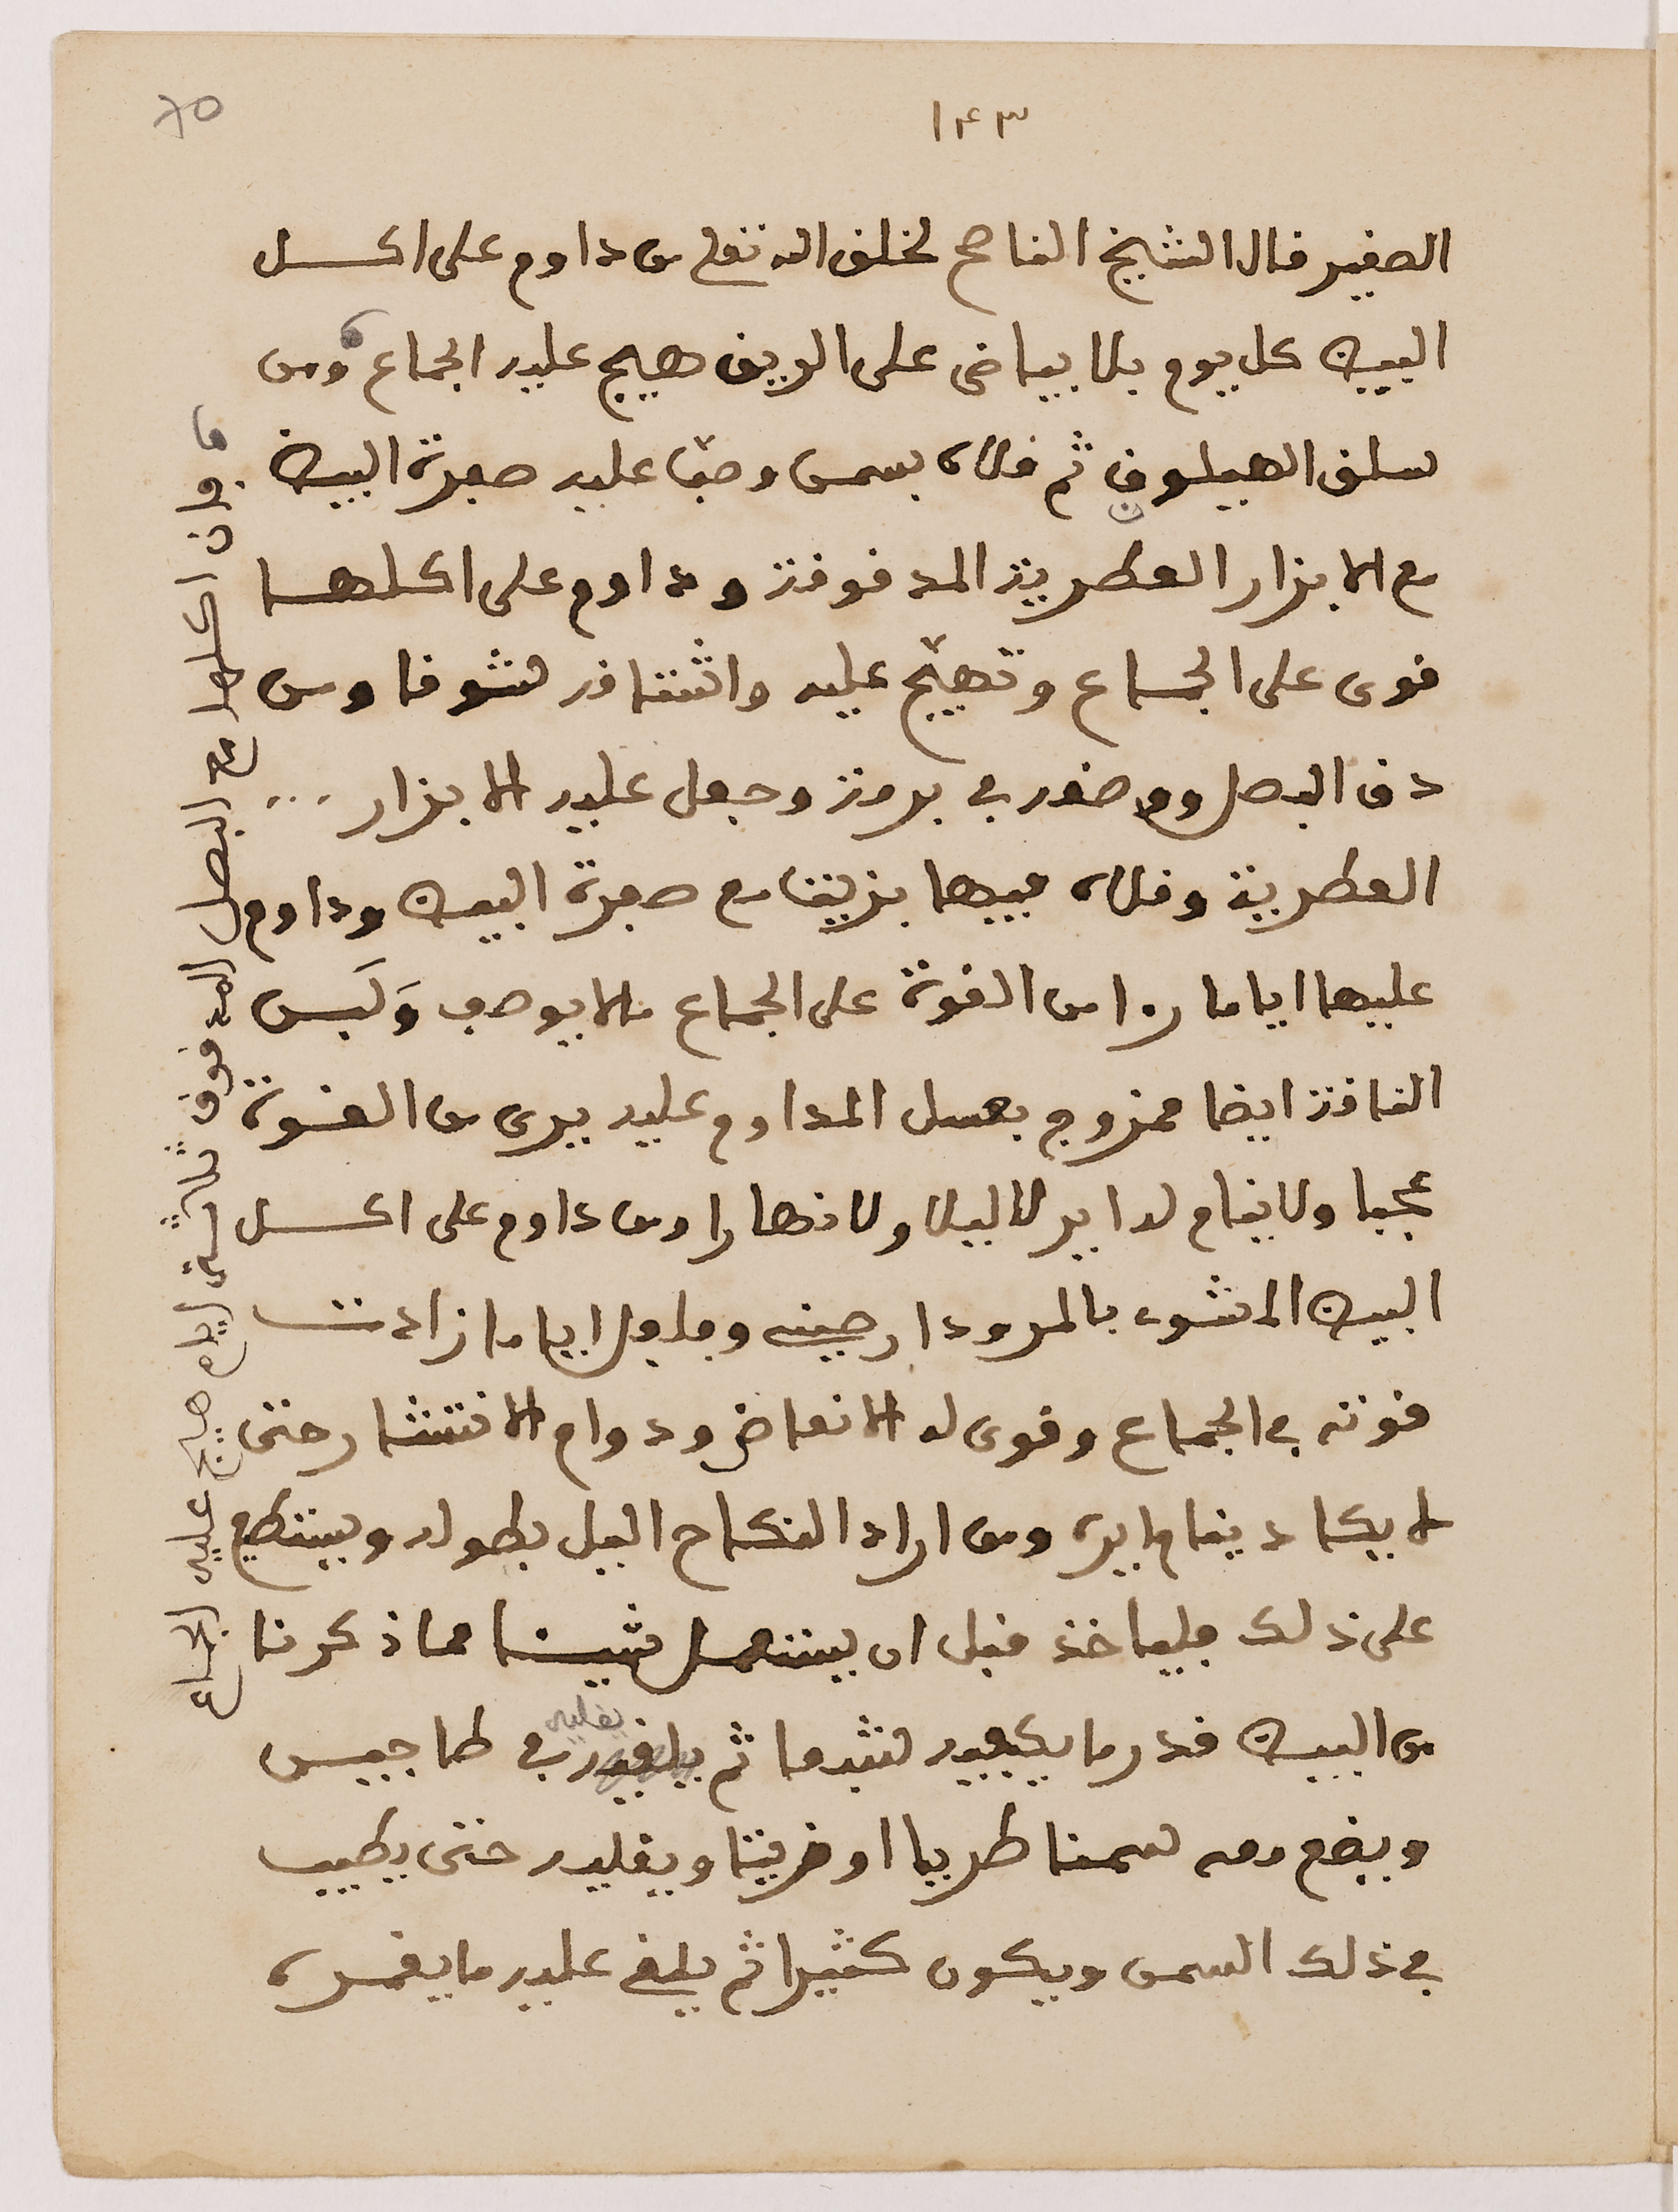 ١٤٣
٧٥
الصغير قال الشيخ الناصح لخلق الله تعلى من داوم على اكل
البيض كل يوم بلا بياض على الريق هيج عليه الجماع ومن
سلق الهيليون ثم قلاه بسمن وصب عليه صفرة البيض
مع الابزار العطرية المدقوقة وداوم على اكلها
قوى على الجماع وتهيّج عليه واشتاقه شوقا ومن
دق البصل ووضعه في برمة وجعل عليه الابزار
العطرية وقلاه فيها بزيت مع صفرة البيض وداوم
عليها اياما را من القوة على الجماع ملا يوصف ولَبن
الناقة ايضا ممزوج بعسل المداوم عليه يرى من القوة
عجبا ولا ينام له اير لا ليلا ولا نهارا ومن داوم على اكل
البيض المشوي بالمر ودارصيني وفلفل اياما زادت
قوته في الجماع وقوى له الانعاض ودوام الانتشار حتى
لا يكاد ينام ايره ومن اراد النكاح اليل بطوله ويستطع
على ذلك فلياخذ قبل ان يستعمل شيئا مما ذكرنا
من البيض قدر ما يكفيه شبعا ثم يلقيه في طاجين
يقليه
ويضع معه سمنا طريا او زيتا ويقليه حتى يطيب
في ذلك السمن ويكون كثيرا ثم يلقي عليه ما يغمره
فان اكلها مع البصل المدقوق ثلاثة ايام هيج عليه الجماع